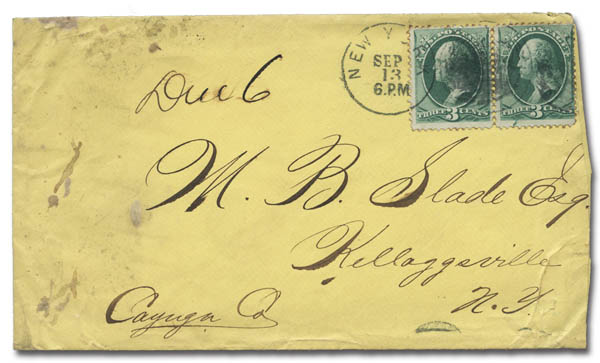 NEW Y
SEP
13
6 P.M
U.S. POSTAGE
THREE 3 CENTS
THREE 3 CENTS
Due 6
M. B. Slade Esq.
Kelloggsville
N. Y.
Cayuga Co